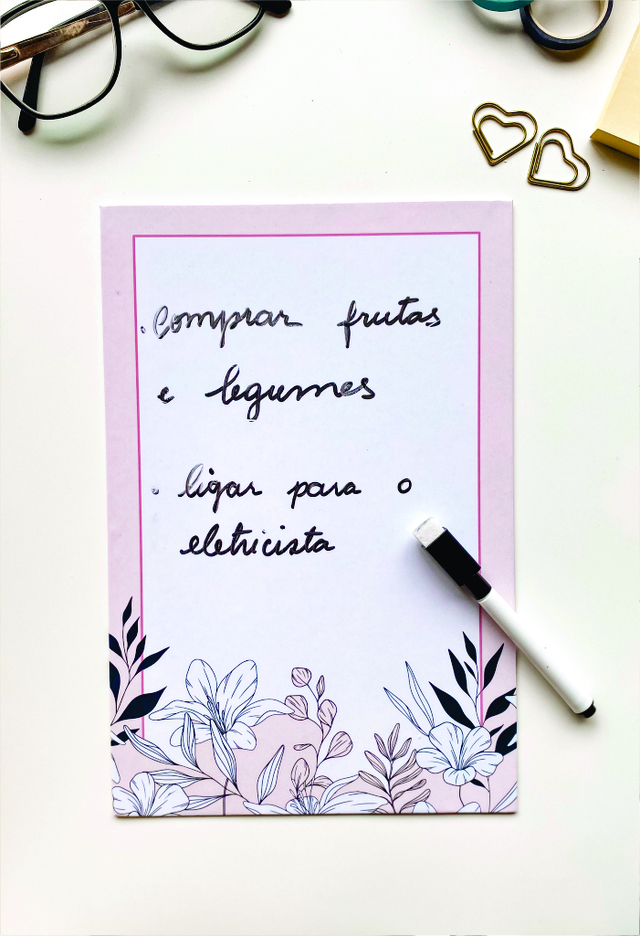 . Comprar frutas
e legumes
. ligar para o
eletricista